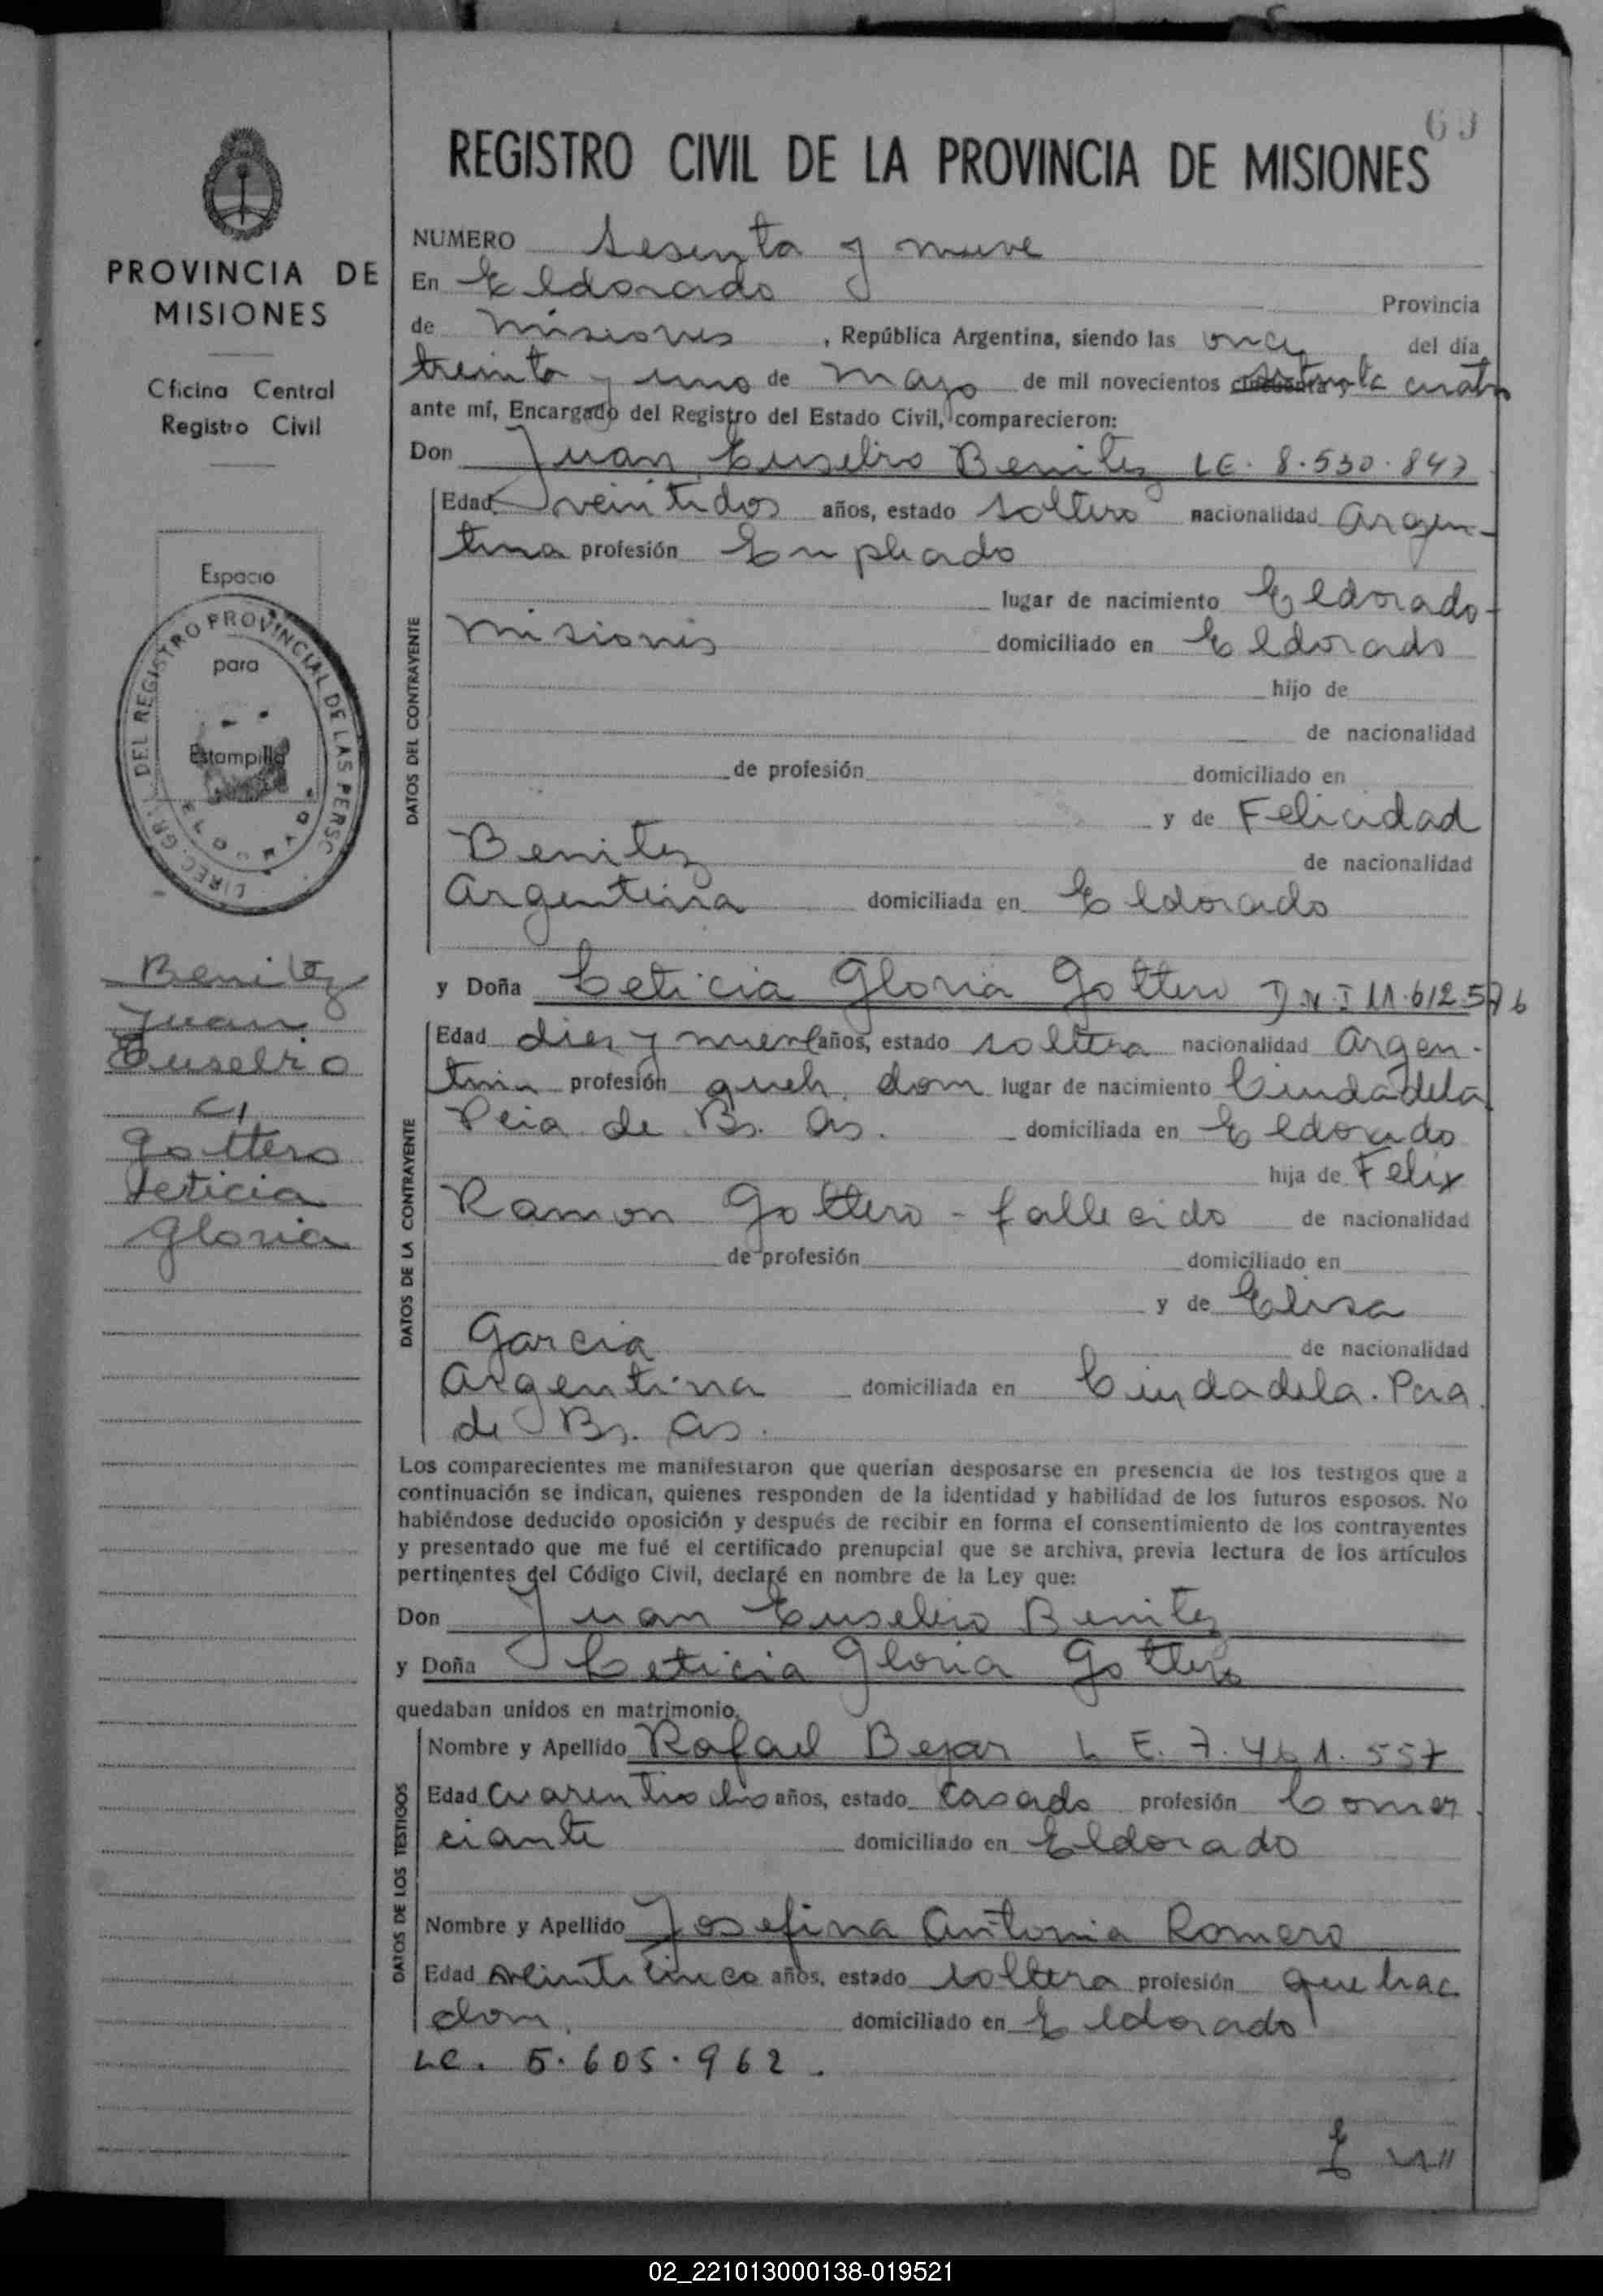 69
REGISTRO CIVIL DE LA PROVINCIA DE MISIONES
PROVINCIA DE
MISIONES
Oficina Central
Registro Civil
Espacio
para
Estampilla
DIREC. GRL. DEL REGISTRO PROVINCIAL DE LAS PERSO
ELDORADO
Benitez
Juan
Eusebio
c/
Gottero
Leticia
Gloria
NUMERO Sesenta y nueve
En Eldorado Provincia
de Misiones, República Argentina, siendo las once del día
treinta y uno de mayo de mil novecientos cincuenta y setenta cuatro
ante mí, Encargado del Registro del Estado Civil, comparecieron:
Don Juan Eusebio Benitez LE. 8.530.847
DATOS DEL CONTRAYENTE
Edad veintidos años, estado soltero nacionalidad Argen-
tina profesión Empleado
lugar de nacimiento Eldorado-
Misiones domiciliado en Eldorado
hijo de
de nacionalidad
de profesión domiciliado en
y de Felicidad
Benitez de nacionalidad
Argentina domiciliada en Eldorado
y Doña Leticia Gloria Gottero DNI 11.612.576
DATOS DE LA CONTRAYENTE
Edad dies y nueve años, estado soltera nacionalidad Argen-
tina profesión queh. dom lugar de nacimiento Ciudadela
Pcia de Bs. As. domiciliada en Eldorado
hija de Felix
Ramon Gottero - fallecido de nacionalidad
de profesión domiciliado en
y de Elisa
Garcia de nacionalidad
Argentina domiciliada en Ciudadela. Pcia
de Bs. As.
Los comparecientes me manifestaron que querían desposarse en presencia de los testigos que a
continuación se indican, quienes responden de la identidad y habilidad de los futuros esposos. No
habiéndose deducido oposición y después de recibir en forma el consentimiento de los contrayentes
y presentado que me fué el certificado prenupcial que se archiva, previa lectura de los artículos
pertinentes del Código Civil, declaré en nombre de la Ley que:
Don Juan Eusebio Benitez
y Doña Leticia Gloria Gottero
quedaban unidos en matrimonio.
DATOS DE LOS TESTIGOS
Nombre y Apellido Rafael Bejar L E. 7.461.557
Edad cuarentiocho años, estado casado profesión Comer
ciante domiciliado en Eldorado
Nombre y Apellido Josefina Antonia Romero
Edad veinticinco años, estado soltera profesión quehac
dom. domiciliado en Eldorado
LC. 5.605.962.
02_221013000138-019521